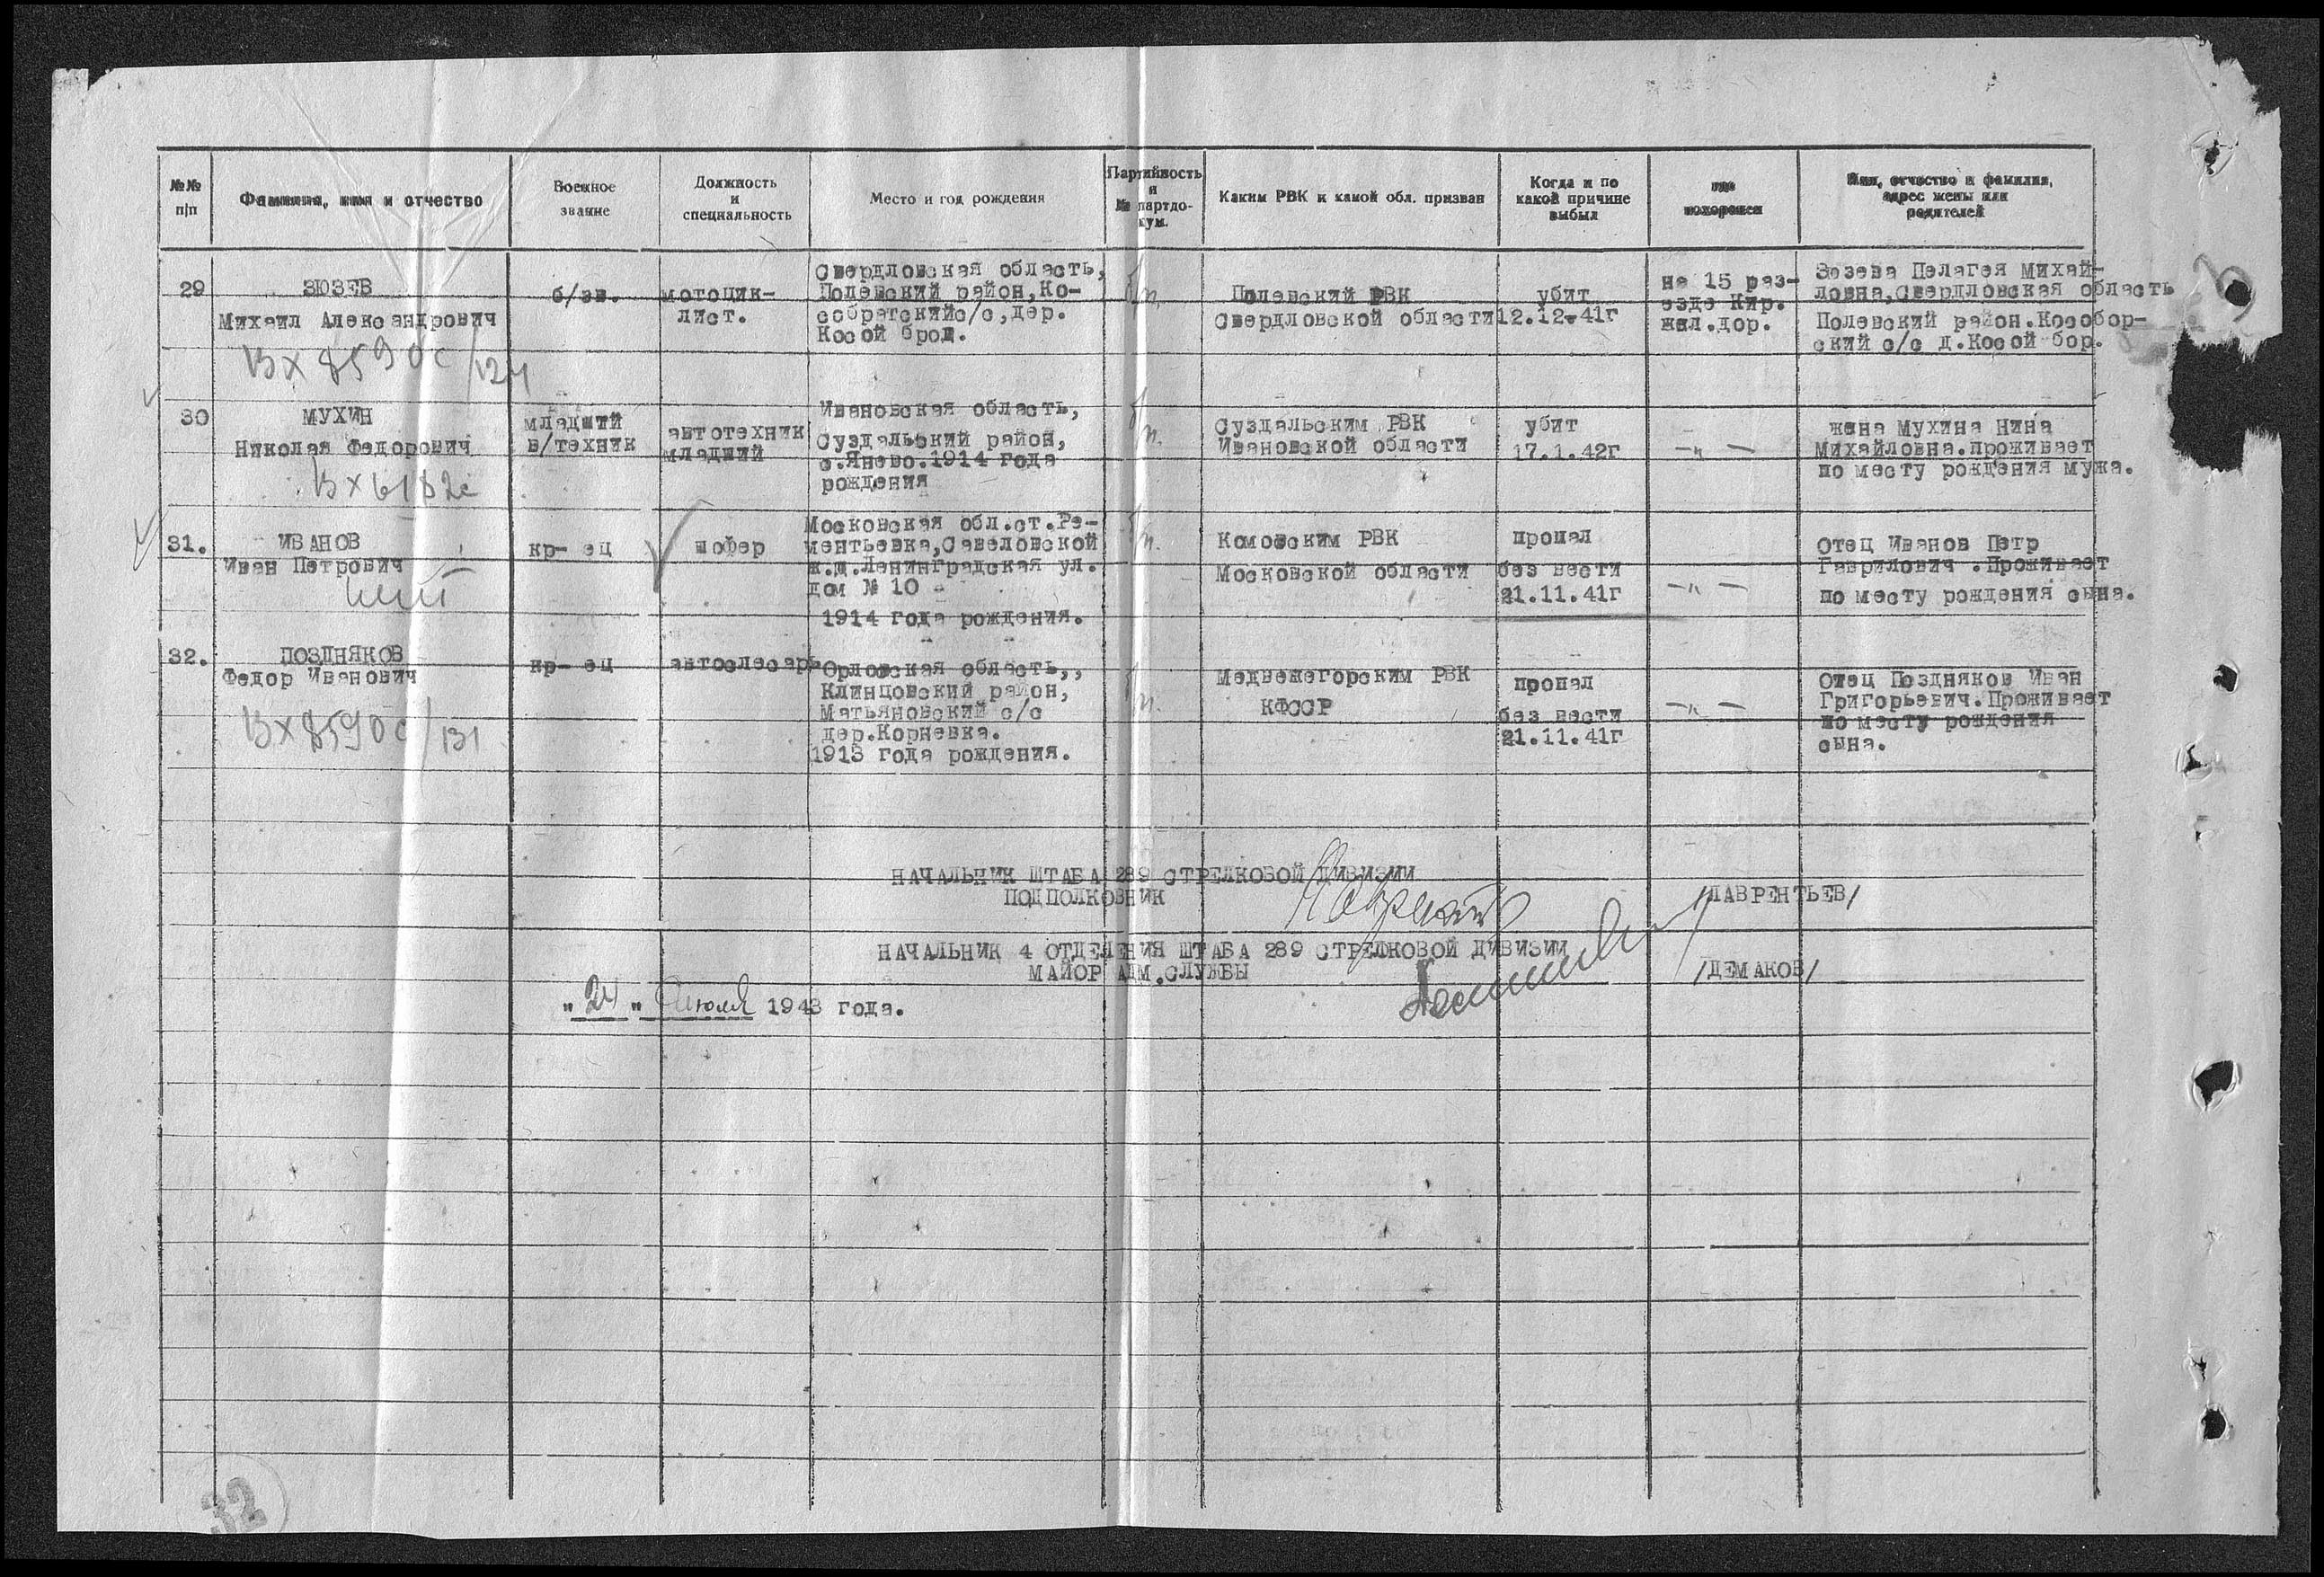 №№
п/п
Фамилия, имя и отчество
Военное
звание
Должность
и
специальность
Место и год рождения
Партийность
и
№ партдо-
кум.
Каким РВК и какой обл. призван
Когда и по
какой причине
выбыл
где
похоронен
Имя, отчество и фамилия,
адрес жены или
родителей
29
ЗЮЗЕВ
Михаил Александрович
ВХ 8590с/124
б/зв.
мотоцик-
лист.
Свердловская область,
Полевский район,Ко-
собратскийс/с,дер.
Косой брод.
б/п.
Полевский РВК
Свердловской области
убит
12.12.41г
на 15 раз-
езде Кир.
жел.дор.
Зюзева Пелагея Михай-
ловна,Свердловская область
Полевский район.Кособор-
ский с/с д.Косой бор.
30
МУХИН
Николай Федорович
ВХ6182с
младший
в/техник
автотехник
младший
Ивановская область,
Суздальский район,
с.Янево.1914 года
рождения
б/п.
Суздальским РВК
Ивановской области
убит
17.1.42г
-"-
жена Мухина Нина
Михайловна.проживает
по месту рождения мужа.
31.
ИВАНОВ
Иван Петрович
кр-ец
шофер
Московская обл.ст.Ре-
ментьевка,Савеловской
ж.д.Ленинградская ул.
дом № 10
1914 года рождения.
б/п.
Комовским РВК
Московской области
пропал
без вести
21.11.41г
-"-
Отец Иванов Петр
Гаврилович.Проживает
по месту рождения сына.
32.
ПОЗДНЯКОВ
Федор Иванович
ВХ8590с/131
кр-ец
автослесарь
Орловская область,,
Клинцовский район,
Матьяновский с/с
дер.Корневка.
1913 года рождения.
б/п.
Медвежегорским РВК
КФССР
пропал
без вести
21.11.41г
-"-
Отец Поздняков Иван
Григорьевич.Проживает
по месту рождения
сына.
НАЧАЛЬНИК ШТАБА 289 СТРЕЛКОВОЙ ДИВИЗИИ
ПОДПОЛКОВНИК
/ЛАВРЕНТЬЕВ/
НАЧАЛЬНИК 4 ОТДЕЛЕНИЯ ШТАБА 289 СТРЕЛКОВОЙ ДИВИЗИИ
МАЙОР АДМ.СЛУЖБЫ
/ДЕМАКОВ/
"24" Июля 1943 года.
32